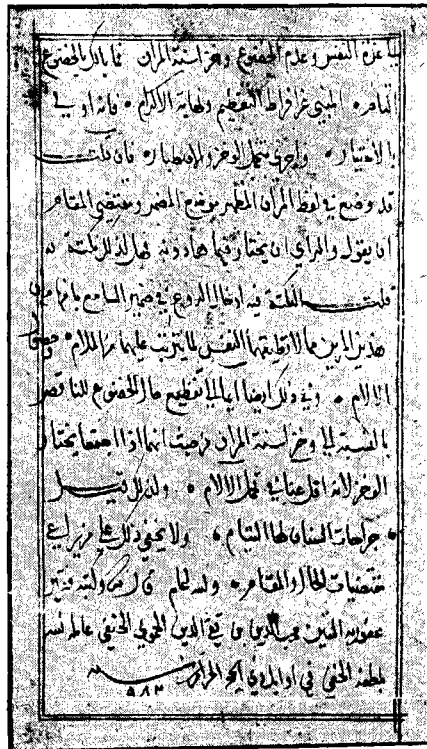 عزة النفس وعدم الخضوع وخز اسنة المران فما بالك بالخضوع
التام المبني عن افراط التعظيم ونهاية الاكرام فانه اولى
بالاختيار واحرى بتحمل الوخز والاصطبار فان قلت
قد وضع في لفظ المران المظهر موضع المضمر ومقتضى المقام
ان يقول والمراي ان يختار فيها هذا دونه فهل لذلك نكتة
قلت النكتة فيه ادخال الروع في ضمير السامع
هذين الامرين مما لا تطيقهما النفس لما يترتب عليهما من الملام
الالام وفي ذلك ايضا ايماء الى تعظيم حال الخضوع للناقص
بالنسبة الى وخز اسنة المران من حيث انهما اذا اجتمعا يختار
الوخز لانه اقل عنا في تحمل الالام ولذلك قيل
جراحات السنان لها التيام ولا يخفى ذلك على من يراعي
مقتضيات الحال والمقام والله اعلم قال وكتبه فقير
عفو ربه المتين محب الدين بن تقي الدين الحموي الحنفي عامله الله
بلطفه الخفي في اوايل
٩٨٣